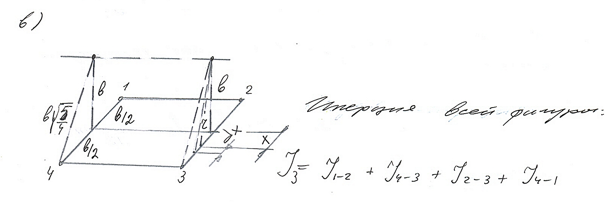 в)
1
2
в
в
в/2
в√5/4
в/2
r
x
4
3
Инерция всей фигуры:
J₃ = J₁₋₂ + J₄₋₃ + J₂₋₃ + J₄₋₁